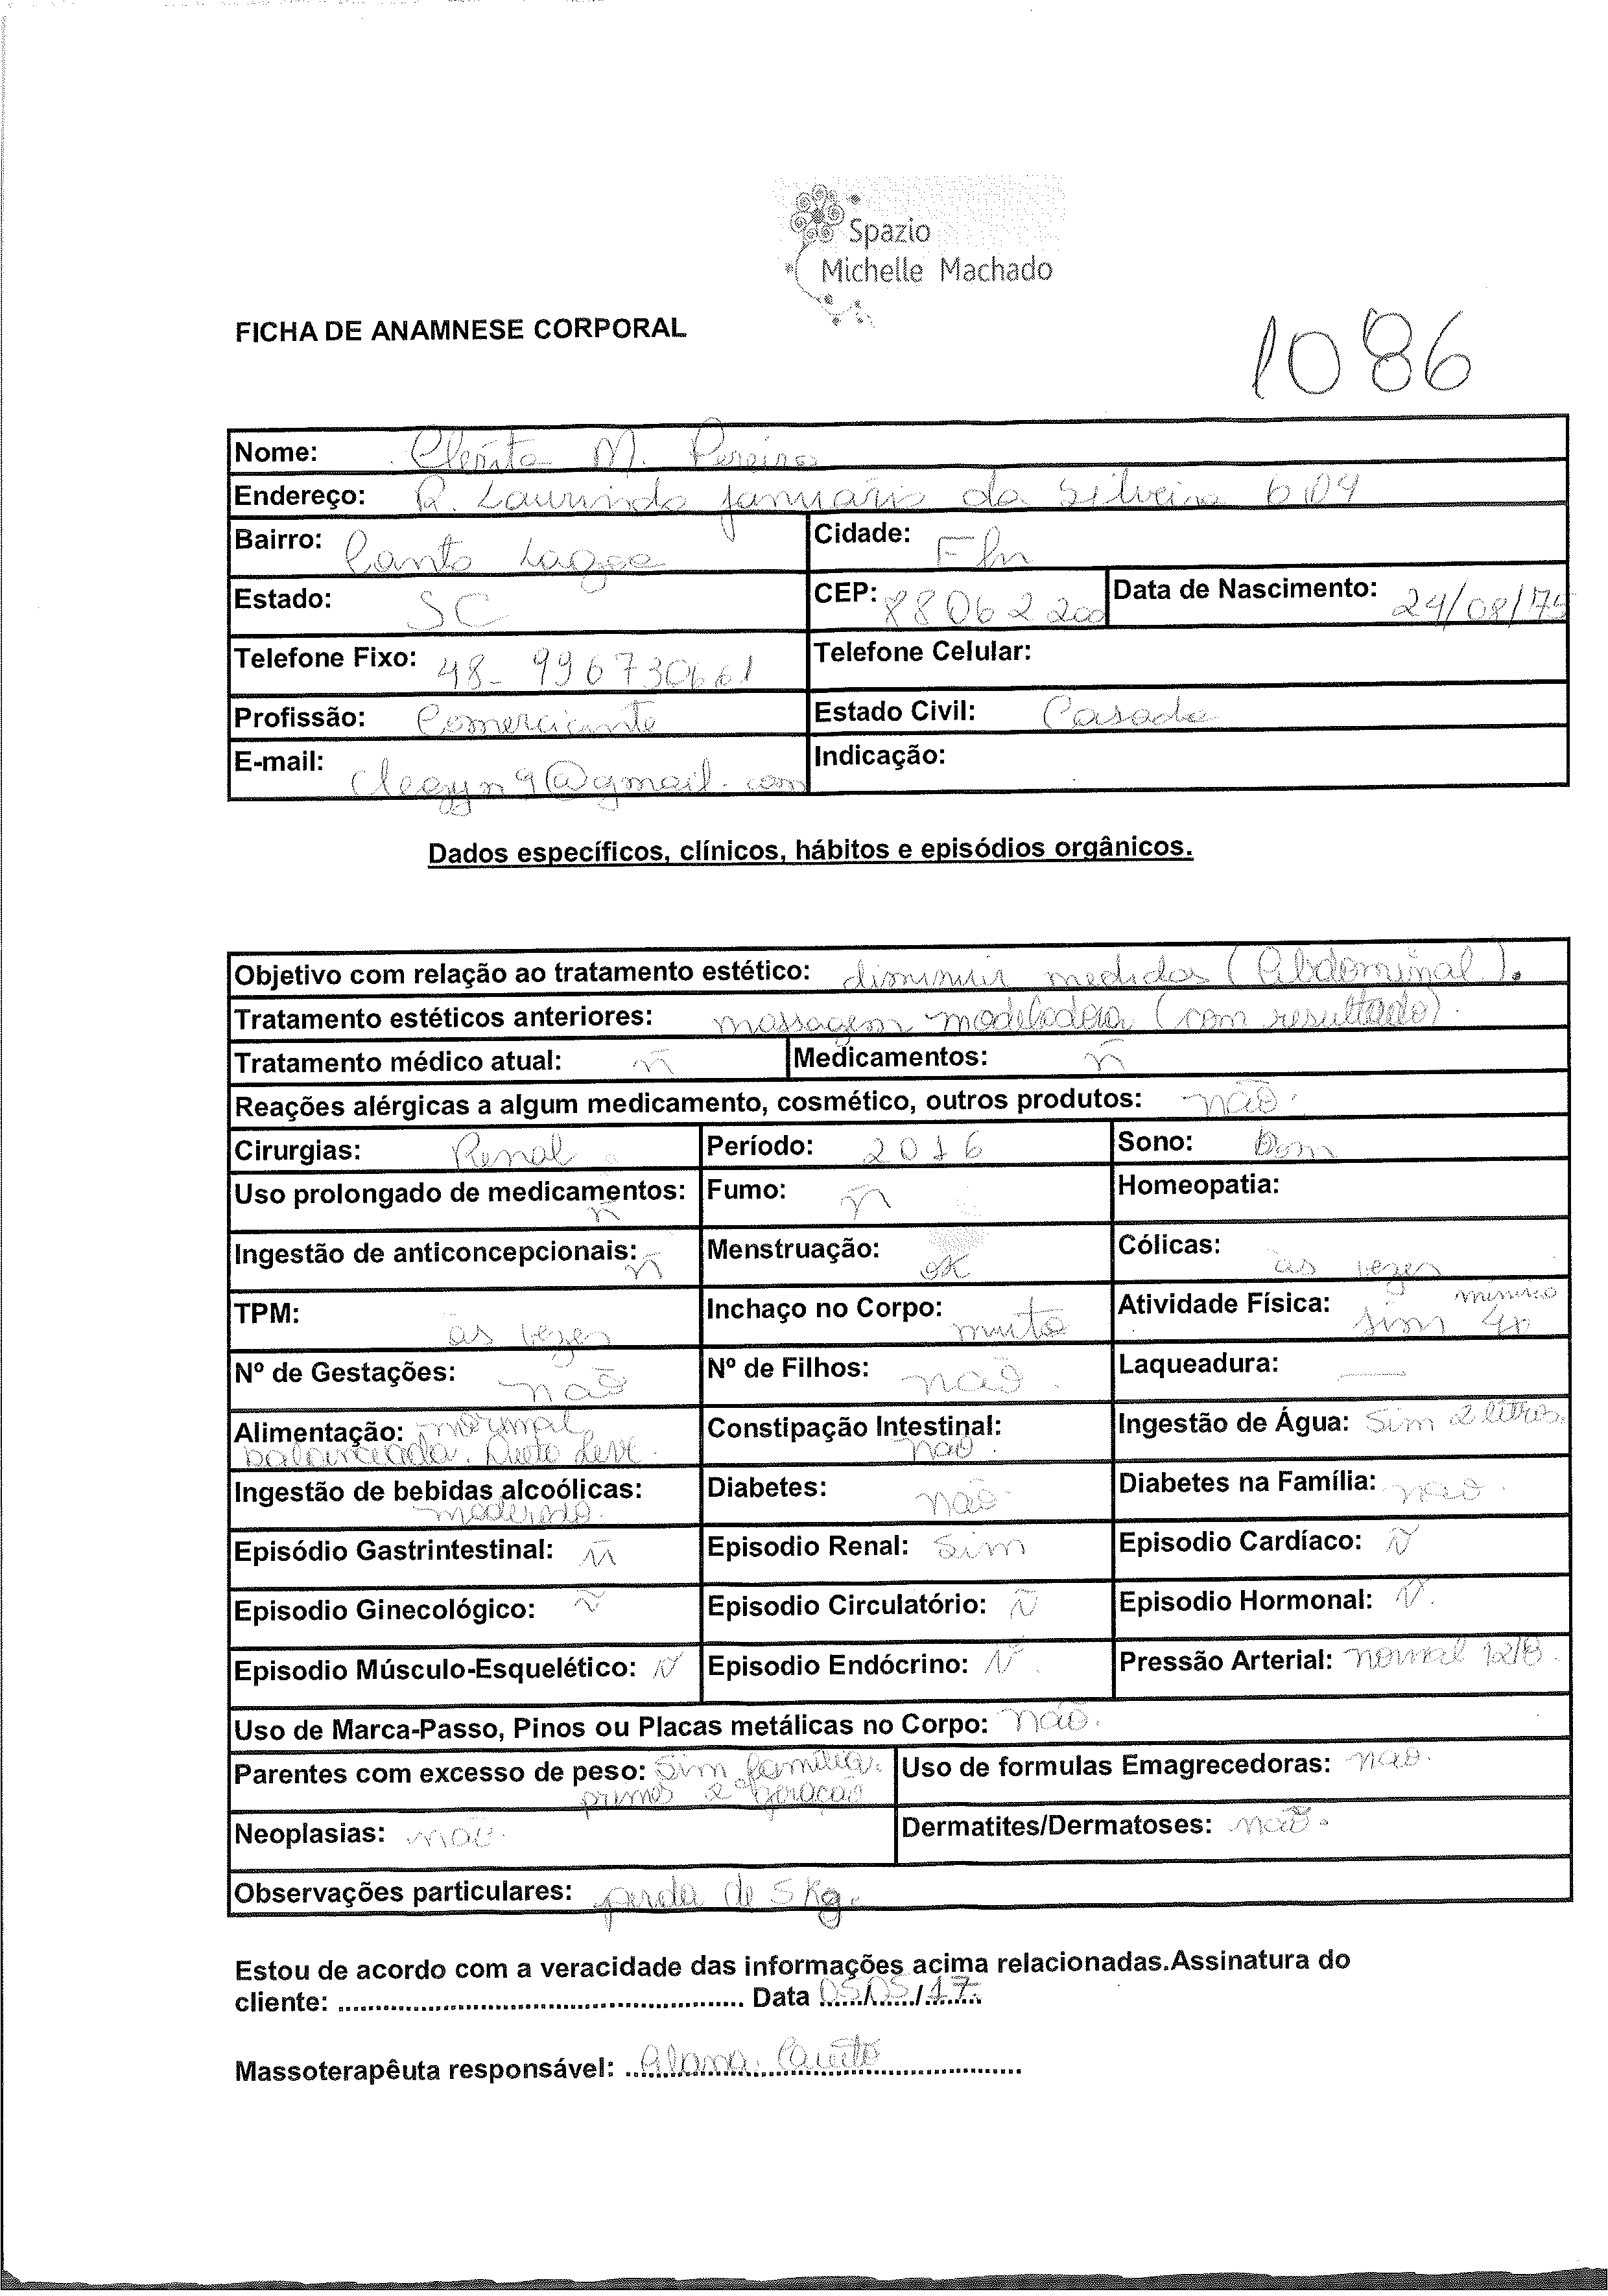 Spazio
Michelle Machado
FICHA DE ANAMNESE CORPORAL
1086
Nome: Clenita M. Pereira
Endereço: R. Laurindo januário da Silveira 604
Bairro: Canto Lagoa Cidade: Fln
Estado: SC CEP: 88062200 Data de Nascimento: 24/08/75
Telefone Fixo: 48- 996730661 Telefone Celular:
Profissão: Comerciante Estado Civil: Casada
E-mail: clegyn9@gmail.com Indicação:
Dados específicos, clínicos, hábitos e episódios orgânicos.
Objetivo com relação ao tratamento estético: diminuir medidas (Abdominal).
Tratamento estéticos anteriores: massagem modeladora (com resultado).
Tratamento médico atual: ñ Medicamentos: ñ
Reações alérgicas a algum medicamento, cosmético, outros produtos: não.
Cirurgias: Renal Período: 2016 Sono: bom
Uso prolongado de medicamentos: ñ Fumo: ñ Homeopatia:
Ingestão de anticoncepcionais: ñ Menstruação: ok Cólicas: as vezes
TPM: as vezes Inchaço no Corpo: muito Atividade Física: sim 4x
Nº de Gestações: não Nº de Filhos: não. Laqueadura: —
Alimentação: normal Constipação Intestinal: não. Ingestão de Água: Sim 2 litros.
balanceada. Dieta leve.
Ingestão de bebidas alcoólicas: moderado. Diabetes: não. Diabetes na Família: não.
Episódio Gastrintestinal: ñ Episodio Renal: Sim Episodio Cardíaco: Ñ
Episodio Ginecológico: Ñ Episodio Circulatório: Ñ Episodio Hormonal: Ñ.
Episodio Músculo-Esquelético: Ñ Episodio Endócrino: Ñ. Pressão Arterial: normal 12/8.
Uso de Marca-Passo, Pinos ou Placas metálicas no Corpo: não.
Parentes com excesso de peso: Sim família. Uso de formulas Emagrecedoras: não.
primos 2ª geração
Neoplasias: não. Dermatites/Dermatoses: não.
Observações particulares: perda de 5 kg.
Estou de acordo com a veracidade das informações acima relacionadas.Assinatura do
cliente: ............................................... Data 05/05/17.
Massoterapêuta responsável: Alana